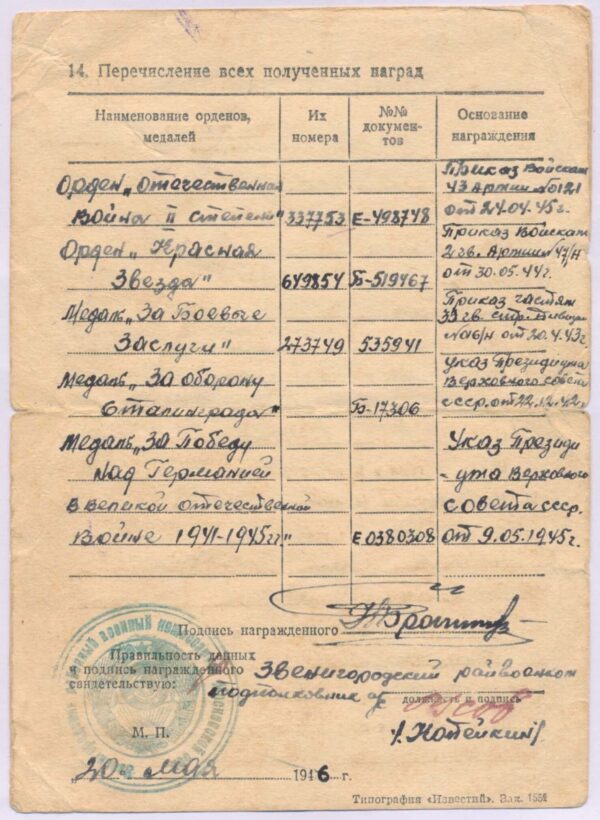 14. Перечисление всех полученных наград
Наименование орденов, медалей
Их номера
№№ докумен-тов
Основание награждения
Орден „Отечественная
Война II степени" 337753 Е-498748
Приказ Войскам
43 Армии №0121
от 24.04.45г.
Орден „Красная
Звезда" 649854 Б-519467
Приказ Войскам
2 гв. Армии 47/н
от 30.05.44г.
Медаль „За Боевые
Заслуги" 273749 535941
Приказ частям
33 гв.
№6/н от 20.4.43г.
Медаль „За оборону
Сталинграда" Б-17306
Указ Президиума
Верховного совета
ссср. от 22.12.42г.
Медаль „За Победу
над Германией
в Великой отечественной
Войне 1941-1945гг" Е 0380308
Указ Президи
-ума Верховного
совета ссср.
от 9.05.1945г.
Подпись награжденного
Правильность данных
и подпись награжденного
свидетельствую:
Звенигородский райвоенком
подполковник а/с
должность и подпись
/Котейкин/
М. П.
„20" мая 1946 г.
Типография «Известий». Зак. 1554